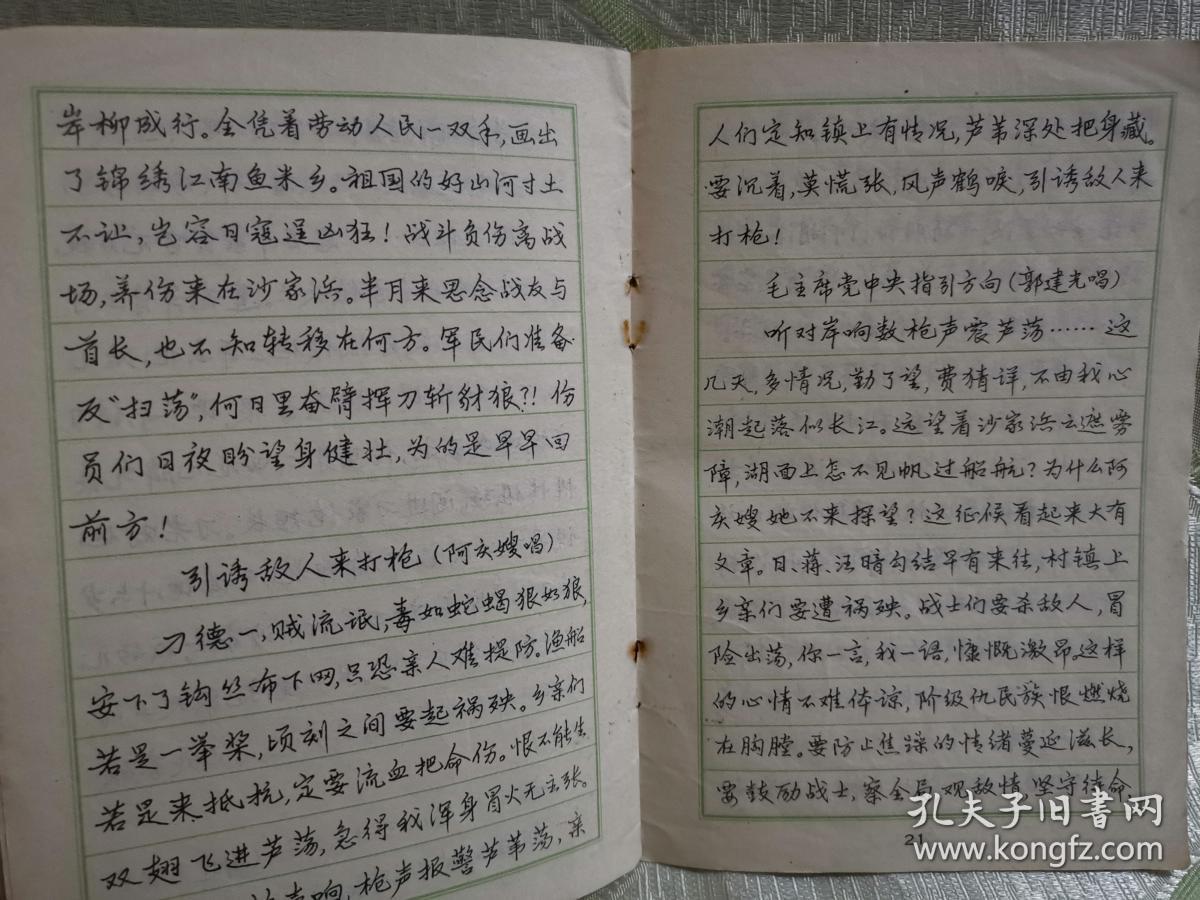 岸柳成行。全凭着劳动人民一双手,画出
了锦绣江南鱼米乡。祖国的好山河寸土
不让,岂容日寇逞凶狂!战斗负伤离战
场,养伤来在沙家浜。半月来思念战友与
首长,也不知转移在何方。军民们准备
反“扫荡”,何日里奋臂挥刀斩豺狼?!伤
员们日夜盼望身健壮,为的是早早回
前方!
引诱敌人来打枪(阿庆嫂唱)
刁德一,贼流氓,毒如蛇蝎狠如狼,
安下了钩丝布下网,只恐亲人难提防。渔船
若是一举桨,顷刻之间要起祸殃。乡亲们
若是来抵抗,定要流血把命伤。恨不能生
双翅飞进芦荡,急得我浑身冒火无主张。
声响,枪声报警芦苇荡,亲
人们定知镇上有情况,芦苇深处把身藏。
要沉着,莫慌张,风声鹤唳,引诱敌人来
打枪!
毛主席党中央指引方向(郭建光唱)
听对岸响数枪声震芦荡……这
几天,多情况,勤了望,费猜详,不由我心
潮起落似长江。远望着沙家浜云遮雾
障,湖面上怎不见帆过船航?为什么阿
庆嫂她不来探望?这征候看起来大有
文章。日、蒋、汪暗勾结早有来往,村镇上
乡亲们要遭祸殃。战士们要杀敌人,冒
险出荡,你一言,我一语,慷慨激昂。这样
的心情不难体谅,阶级仇民族恨燃烧
在胸膛。要防止焦躁的情绪蔓延滋长,
要鼓励战士,察全局,观敌情,坚守待命
21
孔夫子旧书网
www.kongfz.com